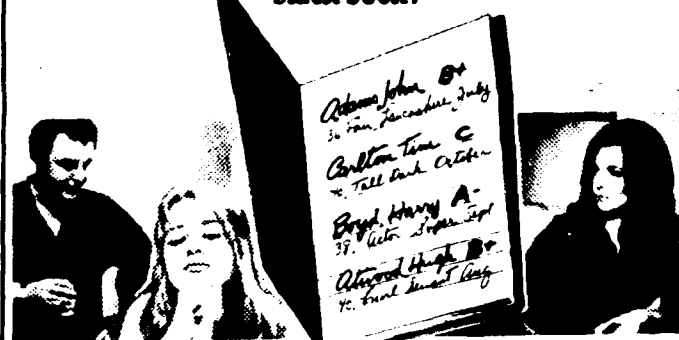 Adams John B+
36 Fair, Lancashire, July
Carlton Tim C
Tall Dark October
Boyd, Harry A-
38. Actor Sept
Atwood Hugh B+
Aug